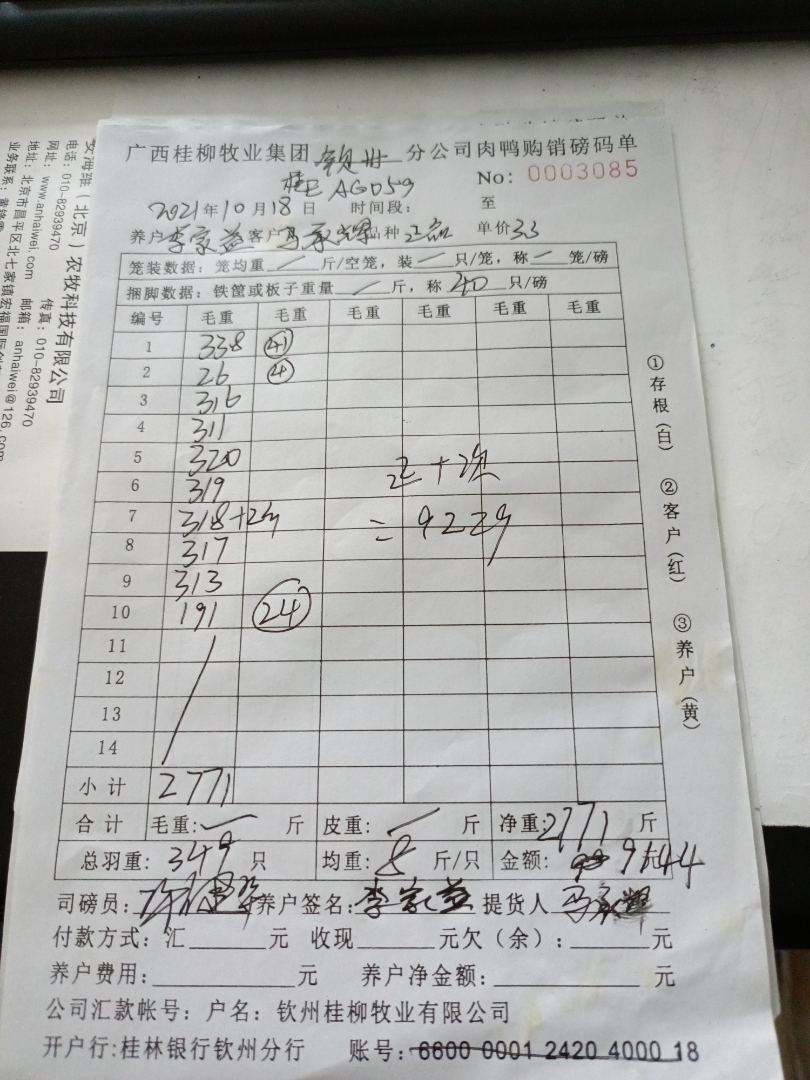 广西桂柳牧业集团 钦州 分公司肉鸭购销磅码单
No: 0003085
桂E AGD59
2021年10月18日 时间段: 至
养户李家益客户 品种正品 单价3.3
笼装数据: 笼均重 / 斤/空笼, 装 / 只/笼, 称 / 笼/磅
捆脚数据: 铁筐或板子重量 / 斤, 称 40 只/磅
编号 毛重 毛重 毛重 毛重 毛重 毛重
1 338 41
2 26 4
3 316
4 311
5 320
6 319
7 318+2
8 317
9 313
10 191 24
11
12
13
14
正+次
= 922只
小计 2771
合计 毛重: / 斤 皮重: / 斤 净重: 2771 斤
总羽重: 349 只 均重: 8 斤/只 金额: 9144 元
司磅员: 养户签名: 李家益 提货人
付款方式: 汇 元 收现 元欠(余): 元
养户费用: 元 养户净金额: 元
公司汇款帐号: 户名: 钦州桂柳牧业有限公司
开户行:桂林银行钦州分行 账号: 6600 0001 2420 4000 18
①存根(白) ②客户(红) ③养户(黄)
(北京)农牧科技有限公司
电话: 010-82939470 传真: 010-82939470
网址: www.anhaiwei.com 邮箱: anhaiwei@126.com
地址: 北京市昌平区北七家镇宏福
业务联系: